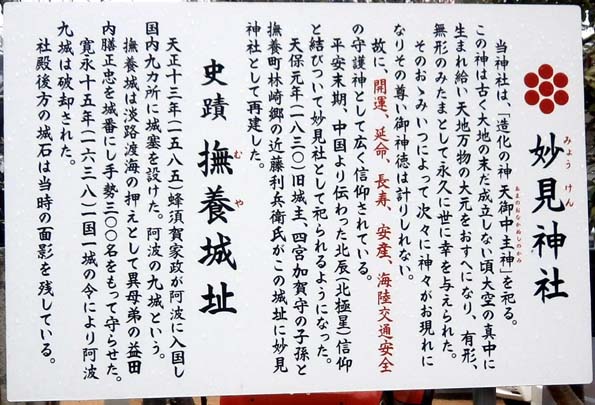 妙見神社
みょうけん
当神社は、「造化の神 天御中主神」を祀る。
あめのみなかぬしのかみ
この神は古く大地の未だ成立しない頃大空の真中に
生まれ給い天地万物の大元をおすへになり、有形、
無形のみたまとして永久に世に幸を与えられた。
そのおゝみいつによって次々に神々がお現れに
なりその尊い御神徳は計りしれない。
故に、開運、延命、長寿、安産、海陸交通安全
の守護神として広く信仰されている。
平安末期、中国より伝わった北辰(北極星)信仰
と結びついて妙見社として祀られるようになった。
天保元年(一八三〇)旧城主、四宮加賀守の子孫と
撫養町林崎郷の近藤利兵衛氏がこの城址に妙見
神社として再建した。
史蹟 撫養城址
むや
天正十三年(一五八五)蜂須賀家政が阿波に入国し
国内九カ所に城塞を設けた。阿波の九城という。
撫養城は淡路渡海の押えとして異母弟の益田
内膳正忠を城番にし手勢三〇〇名をもって守らせた。
寛永十五年(一六三八)一国一城の令により阿波
九城は破却された。
社殿後方の城石は当時の面影を残している。